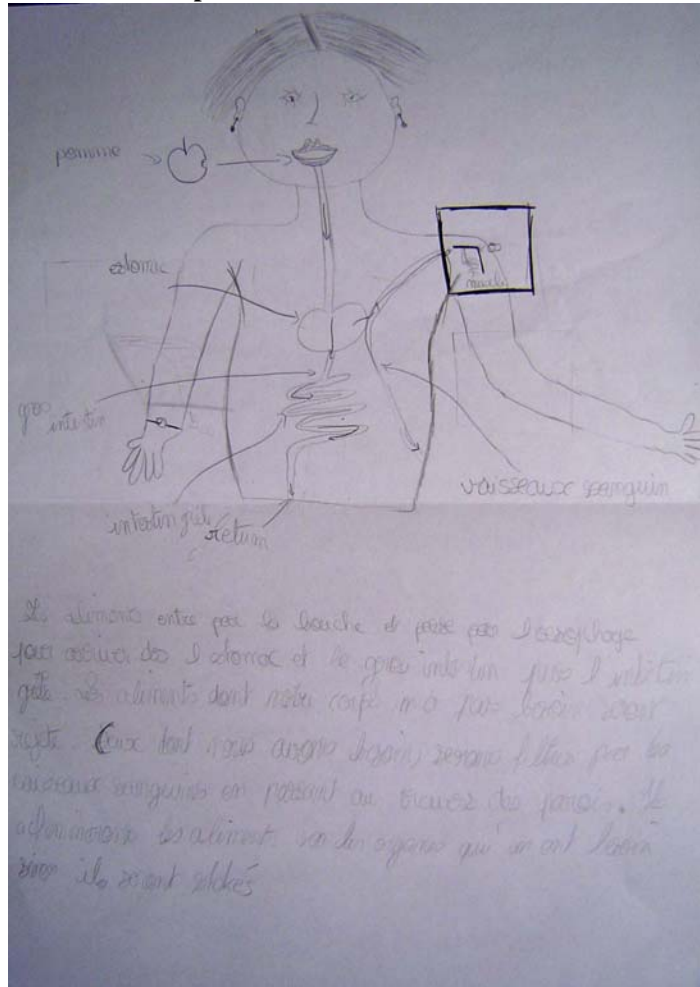 pomme
estomac
gros
intestin
vaisseaux sanguin
intestin grêle
retum
Les aliments entre par la bouche et passe par l'oesophage
pour arriver dos l'estomac et le gros intestin puis l'intestin
grêle. Les aliments dont notre corps n'a pas besoin seront
rejeté. Ceux dont nous avons besoin, serons filtrés par les
vaisseaux sanguins en passant au travers des parois. Ils
les aliments les organes qui en ont besoin
sinon ils seront stokés